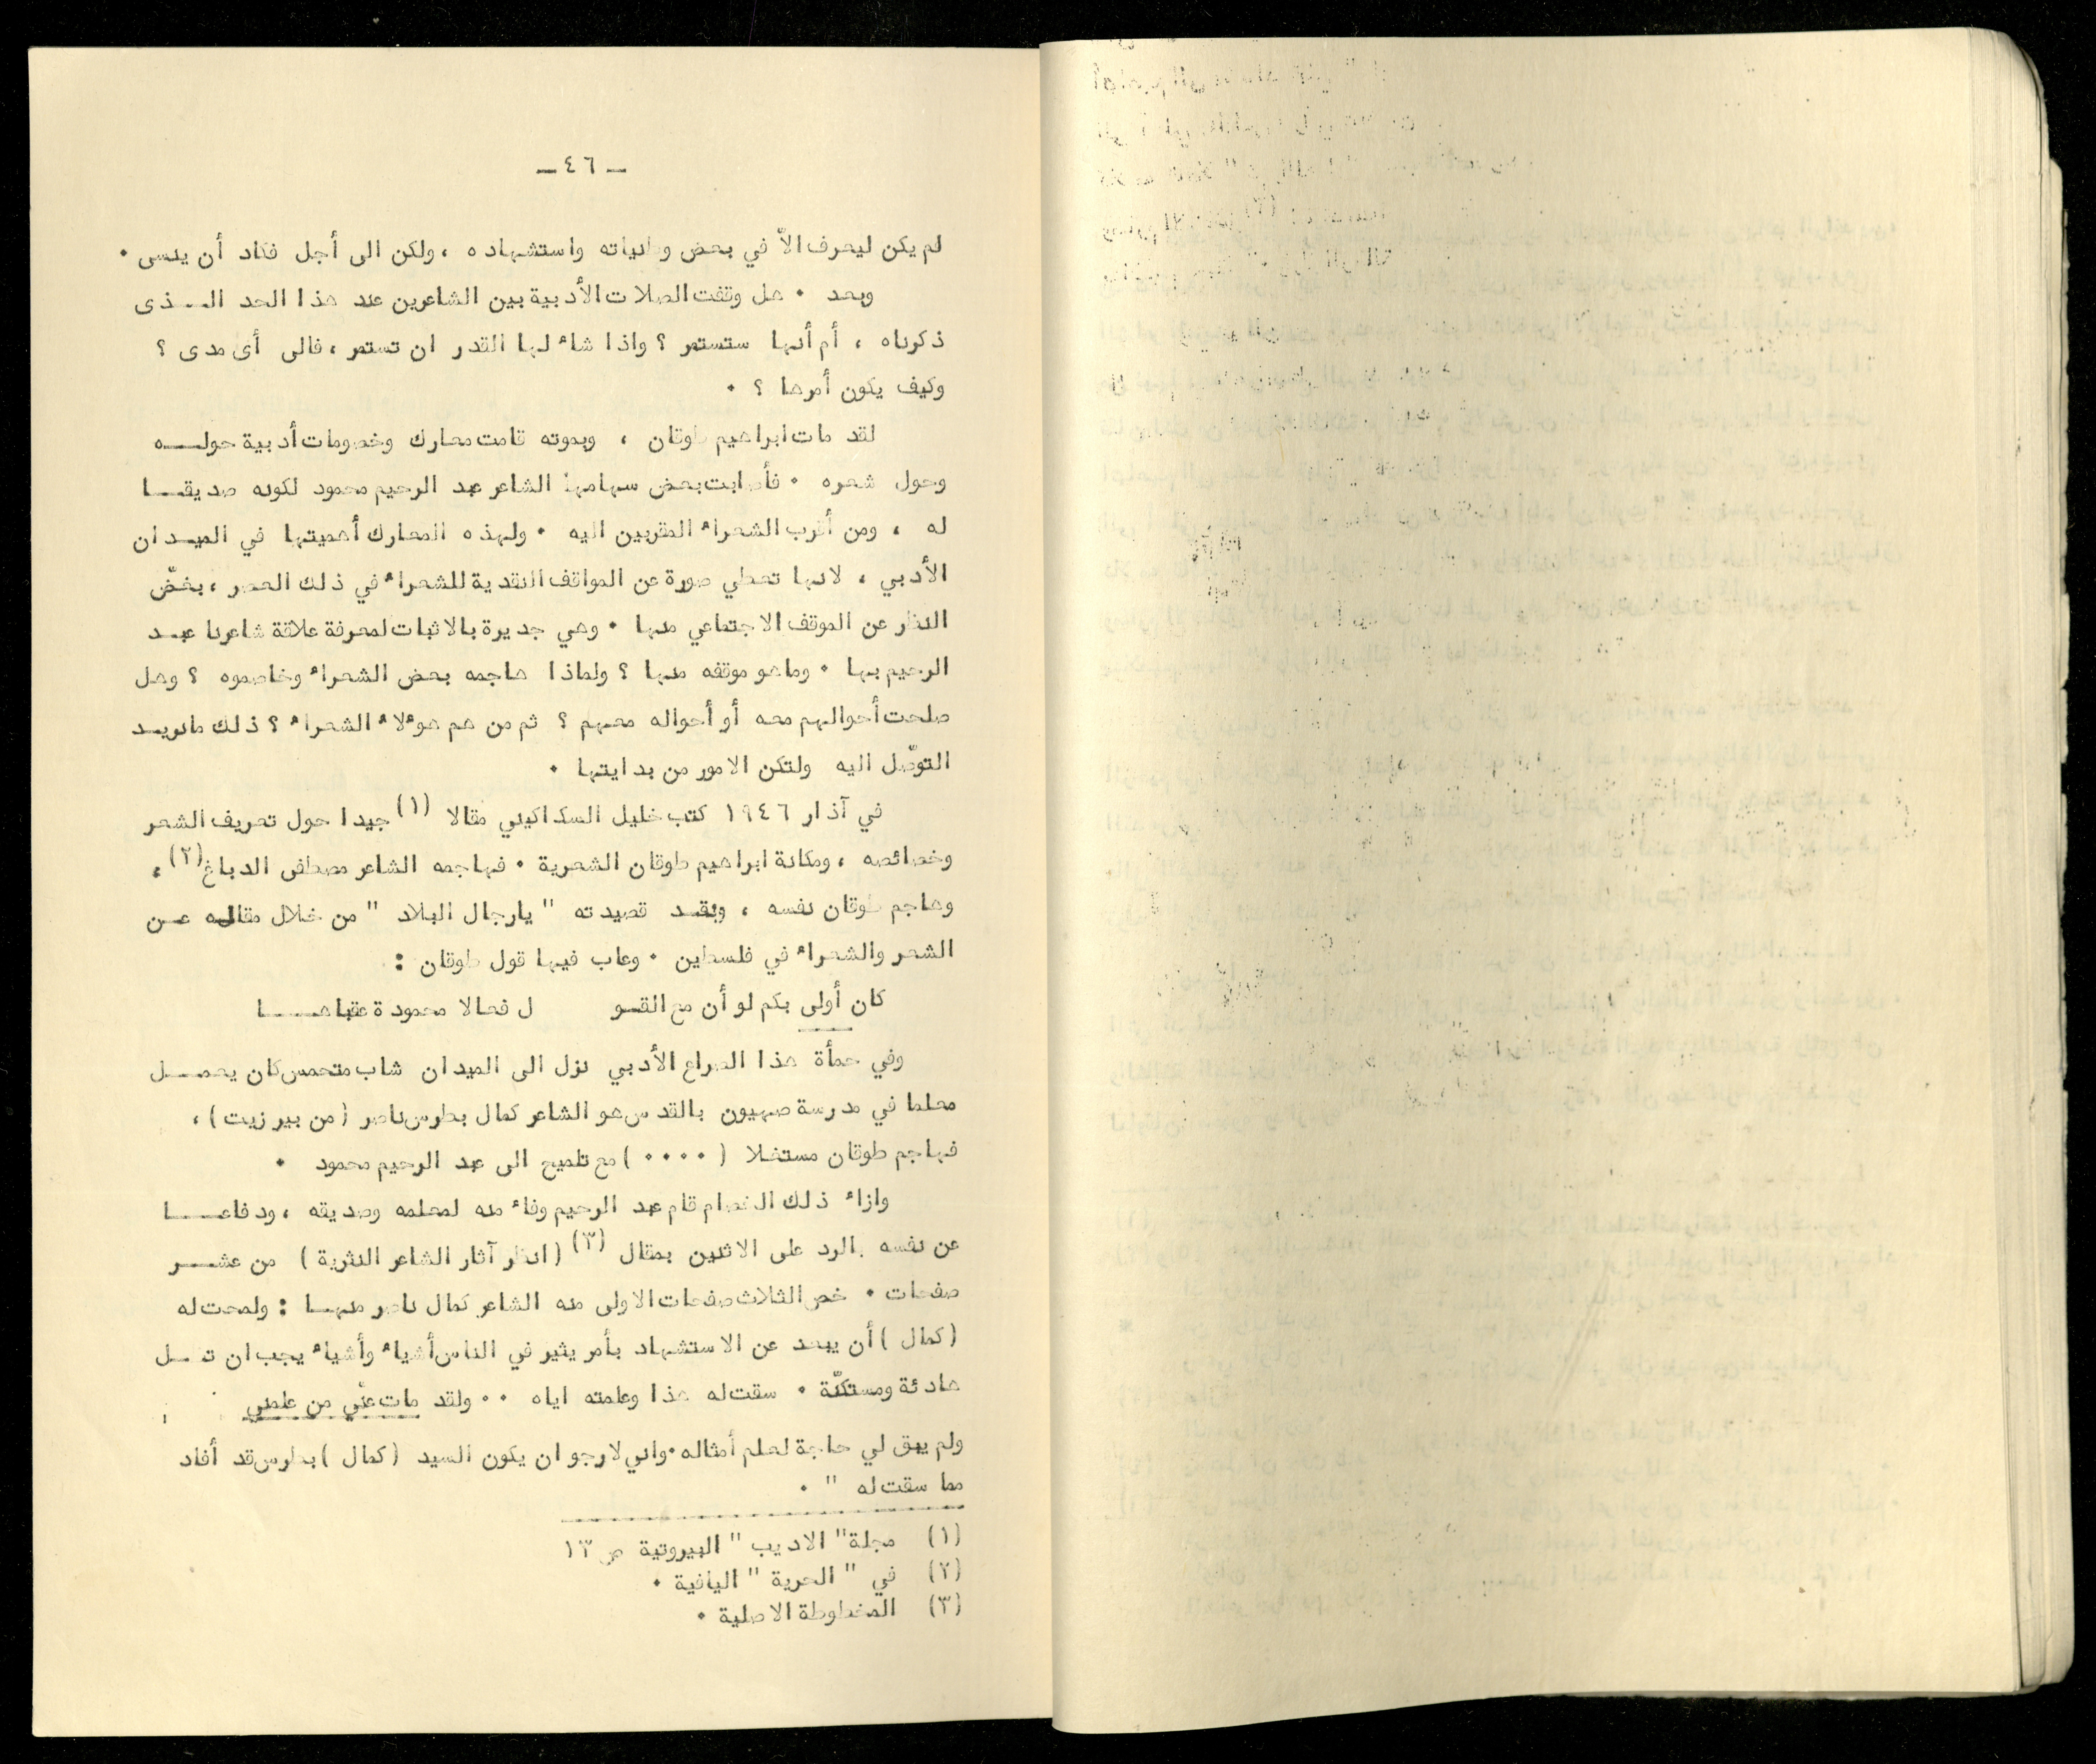 ـ ٤٦ ـ
لم يكن ليعرف الاّ في بعض وطنياته واستشهاده ، ولكن الى أجل فكاد أن ينسى ٠
وبعد ٠ هل وقفت الصلات الأدبية بين الشاعرين عند هذا الحد الــذى
ذكرناه ، أم أنها ستستمر ؟ واذا شاء لها القدر ان تستمر ، فالى أى مدى ؟
وكيف يكون أمرها ؟ ٠
لقد مات ابراهيم طوقان ، وبموته قامت معارك وخصومات أدبية حولــه
وحول شعره ٠ فأصابت بعض سهامها الشاعر عبد الرحيم محمود لكونه صديقــا
له ، ومن أقرب الشعراء المقربين اليه ٠ ولهذه المعارك أهميتها في الميدان
الأدبي ، لانها تعطي صورة عن المواقف النقدية للشعراء في ذلك العصر ، بغضّ
النظر عن الموقف الاجتماعي منها ٠ وهي جديرة بالاثبات لمعرفة علاقة شاعرنا عبد
الرحيم بها ٠ وما هو موقفه منها ؟ ولماذا هاجمه بعض الشعراء وخاصموه ؟ وهل
صلحت أحوالهم معه أو أحواله معهم ؟ ثم من هم هؤلاء الشعراء ؟ ذلك مانريد
التوصّل اليه ولتكن الامور من بدايتها ٠
في آذار ١٩٤٦ كتب خليل السكاكيني مقالا (١) جيدا حول تعريف الشعر
وخصائصه ، ومكانة ابراهيم طوقان الشعرية ٠ فهاجمه الشاعر مصطفى الدباغ (٢) ،
وهاجم طوقان نفسه ، ونقد قصيدته " يارجال البلاد " من خلال مقاله عن
الشعر والشعراء في فلسطين ٠ وعاب فيها قول طوقان :
كان أولى بكم لو أن مع القــو    ل فعالا محمودة عقباهــا
وفي حمأة هذا الصراع الأدبي نزل الى الميدان شاب متحمس كان يعمــل
معلما في مدرسة صهيون بالقدس هو الشاعر كمال بطرس ناصر ( من بير زيت ) ،
فهاجم طوقان مستغلا ( ٠٠٠٠ ) مع تلميح الى عبد الرحيم محمود ٠
وازاء ذلك الخصام قام عبد الرحيم وفاء منه لمعلمه وصديقه ، ودفاعــا
عن نفسه بالرد على الاثنين بمقال (٣) ( انظر آثار الشاعر النثرية ) من عشــر
صفحات ٠ خص الثلاث صفحات الاولى منه الشاعر كمال ناصر منهــا : ولمحت له
( كمال ) أن يبعد عن الاستشهاد بأمر يثير في الناس أشياء وأشياء يجب ان تظل
هادئة ومستكنّة ٠ سقت له هذا وعلمته اياه ٠٠ ولقد مات عنّي من علمني
ولم يبق لي حاجة لعلم أمثاله ٠ واني لارجو ان يكون السيد ( كمال ) بطرس قد أفاد
مما سقت له " ٠
(١) مجلة " الاديب " البيروتية ص ١٣
(٢) في " الحرية " اليافية ٠
(٣) المخطوطة الاصلية ٠